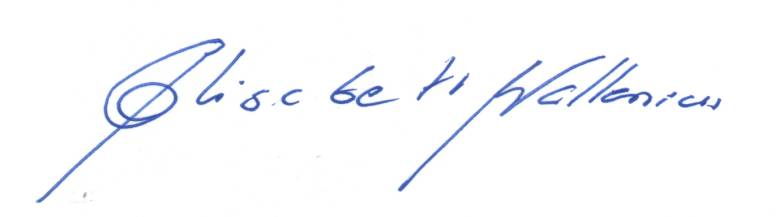 Elisabeth Wallenius